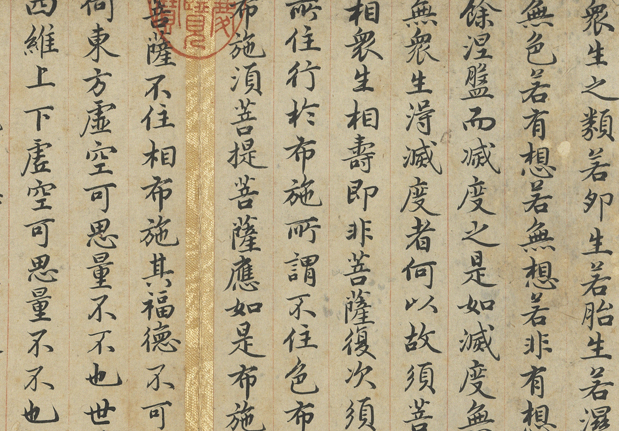 衆生之類若夘生若胎生若濕
無色若有想若無想若非有想
餘涅盤而滅度之是如滅度無
無衆生淂滅度者何以故須菩
相衆生相壽即非菩薩復次須
所住行於布施所謂不住色布
布施須菩提菩薩應如是布施
菩薩不住相布施其福德不可
何東方虛空可思量不不也世
西維上下虛空可思量不不也